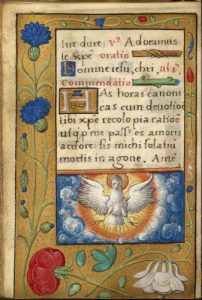 tur dure, V̾ Adoramus
te xp̄e oratio
Domine iesu, chri, al, s̄
Commendatio
HAs horas canoni
cas cum deuotiōe
tibi xpē recolo pia ratiōe
ut q̄ p me paT̄ es amoris
ardore: sis michi solatiū
mortis in agone. Amē